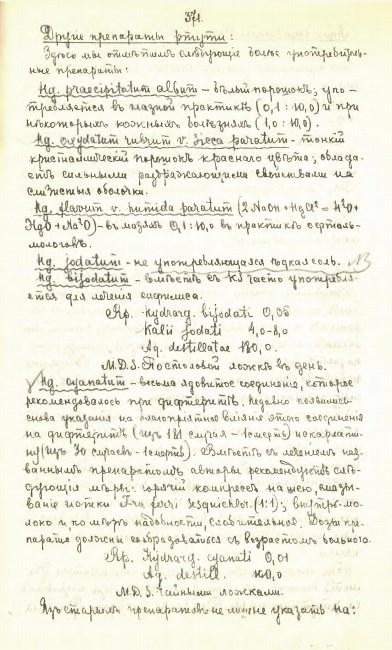 371.
Другіе препараты ртути:
Здѣсь мы отмѣтимъ слѣдующіе болѣе употребитель-
ные препараты:
Hg. praecipitatum album - бѣлый порошокъ; упо-
требляется въ глазной практикѣ (0,1 : 10,0) и при
нѣкоторыхъ кожныхъ болѣзняхъ (1,0 : 10,0).
Hg. oxydatum rubrum v. sicca paratum - тонкій
кристаллическій порошокъ краснаго цвѣта; облада-
етъ сильными раздражающими свойствами на
слизистыя оболочки.
Hg. flavum v. humida paratum (2NaOH + HgCl² = H²O +
HgO + Na²O) - въ мазяхъ 0,1 : 10,0 въ практикѣ офталь-
мологовъ.
Hg. jodatum - не употребляющаяся іодкая соль.
Hg. bijodatum - вмѣстѣ съ KJ часто употребля-
ется для леченія сифилиса.
Rp. Hydrarg. bijodati 0,06
Kalii jodati 4,0-8,0
Aq. destillatae 180,0.
M.D.S. По столовой ложкѣ въ день.
Hg. cyanatum - весьма ядовитое соединеніе, которое
рекомендовалось при дифтеритѣ. Недавно появились
снова указанія на благопріятное вліяніе этого соединенія
на дифтеритъ (изъ 131 случая - 1 смерть) и скарлати-
ну (изъ 30 случаевъ - 1 смерть). Вмѣстѣ съ леченіемъ наз-
ваннымъ препаратомъ авторы рекомендуютъ слѣ-
дующія мѣры: горячій компрессъ на шею, смазы-
ваніе глотки T-ra ferri sesquichlor. (1:1); внутрь - мо-
локо и по мѣрѣ надобности, слабительное. Дозы пре-
парата должны сообразоваться съ возрастомъ больного.
Rp. Hydrarg. cyanati 0,01
Aq. destill. 100,0
M.D.S. Чайными ложками.
Изъ старыхъ препаратовъ не лишне указать на: